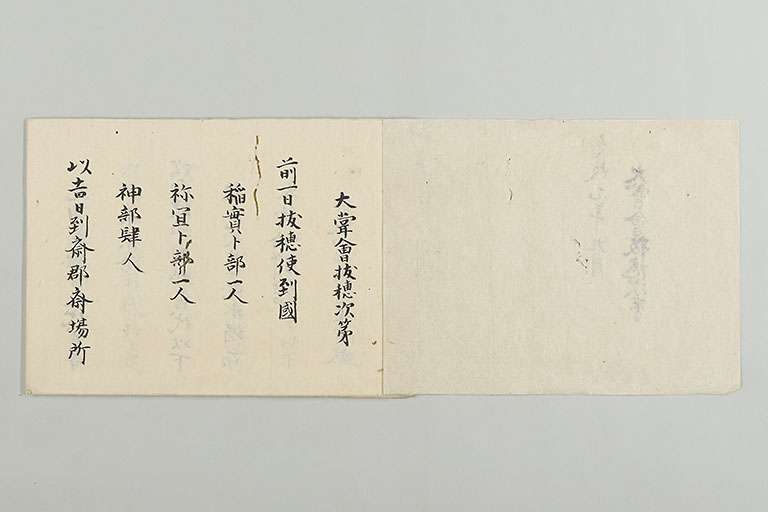 大甞會抜穂次第
前一日抜穂使到國
稲實卜部一人
祢宜卜部一人
神部肆人
以吉日到斎郡斎場所